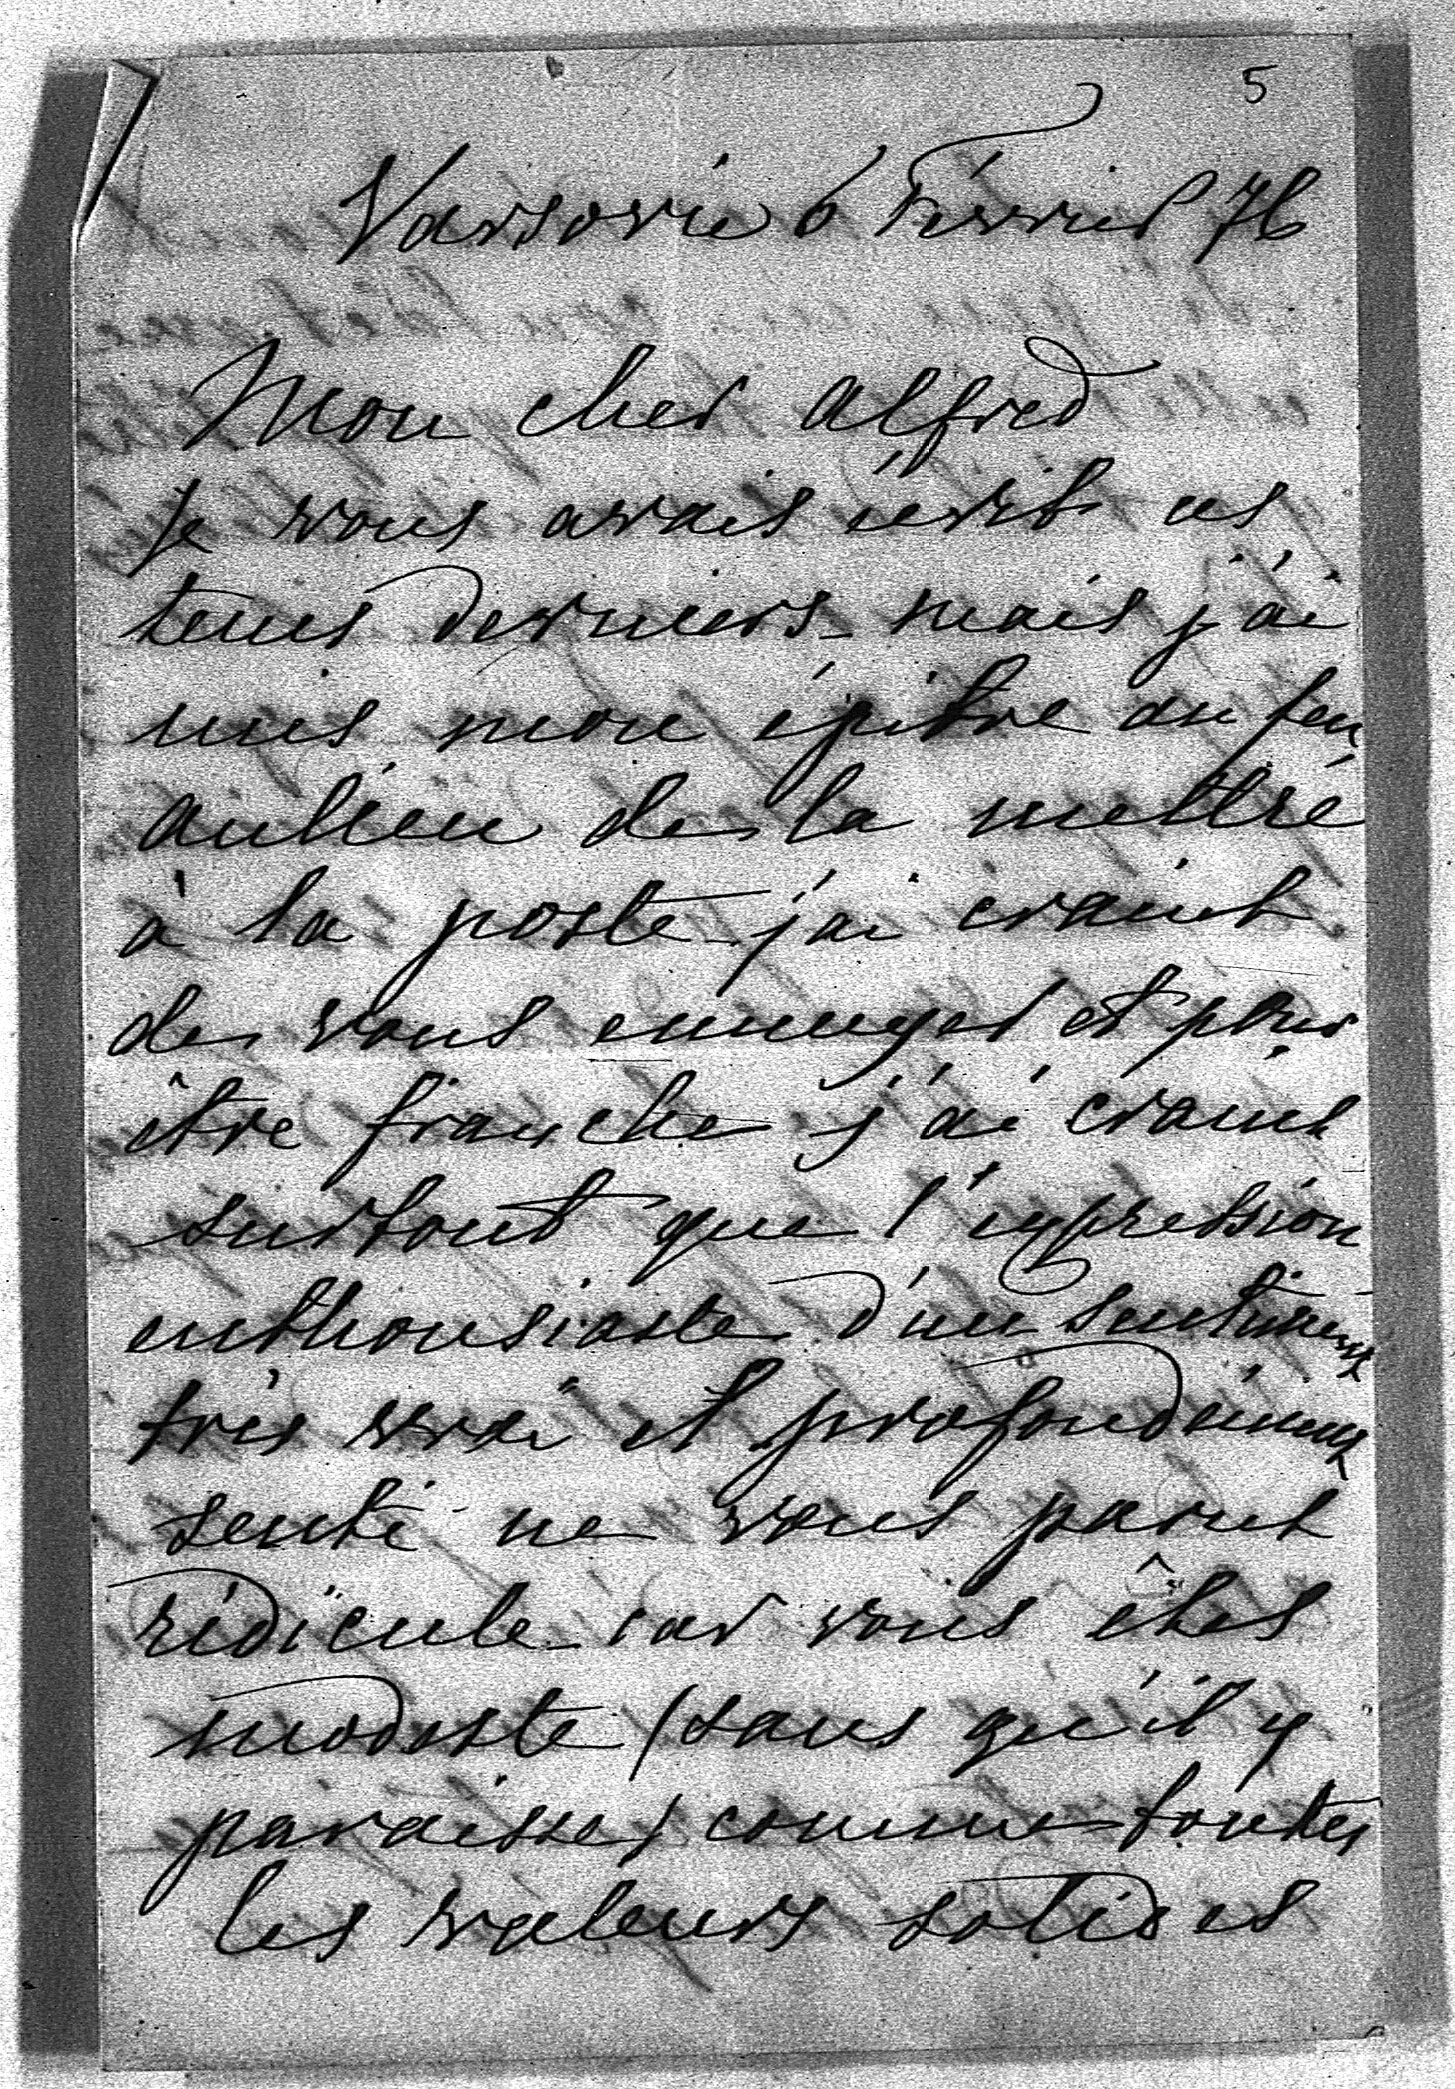 5
Varsovie 6 Février 76
Mon cher Alfred
Je vous avais écrit ces
tems derniers - mais j'ai
mis mon épitre au feu
aulieu de la mettre
à la poste - j'ai craint
de vous ennuyer et pour
être franche j'ai craint
surtout que l'expression
enthousiaste d'un sentiment
très vrai et profondément
senti ne vous parut
ridicule - car vous êtes
modeste (sans qu'il y
paraisse) comme toutes
les valeurs solides